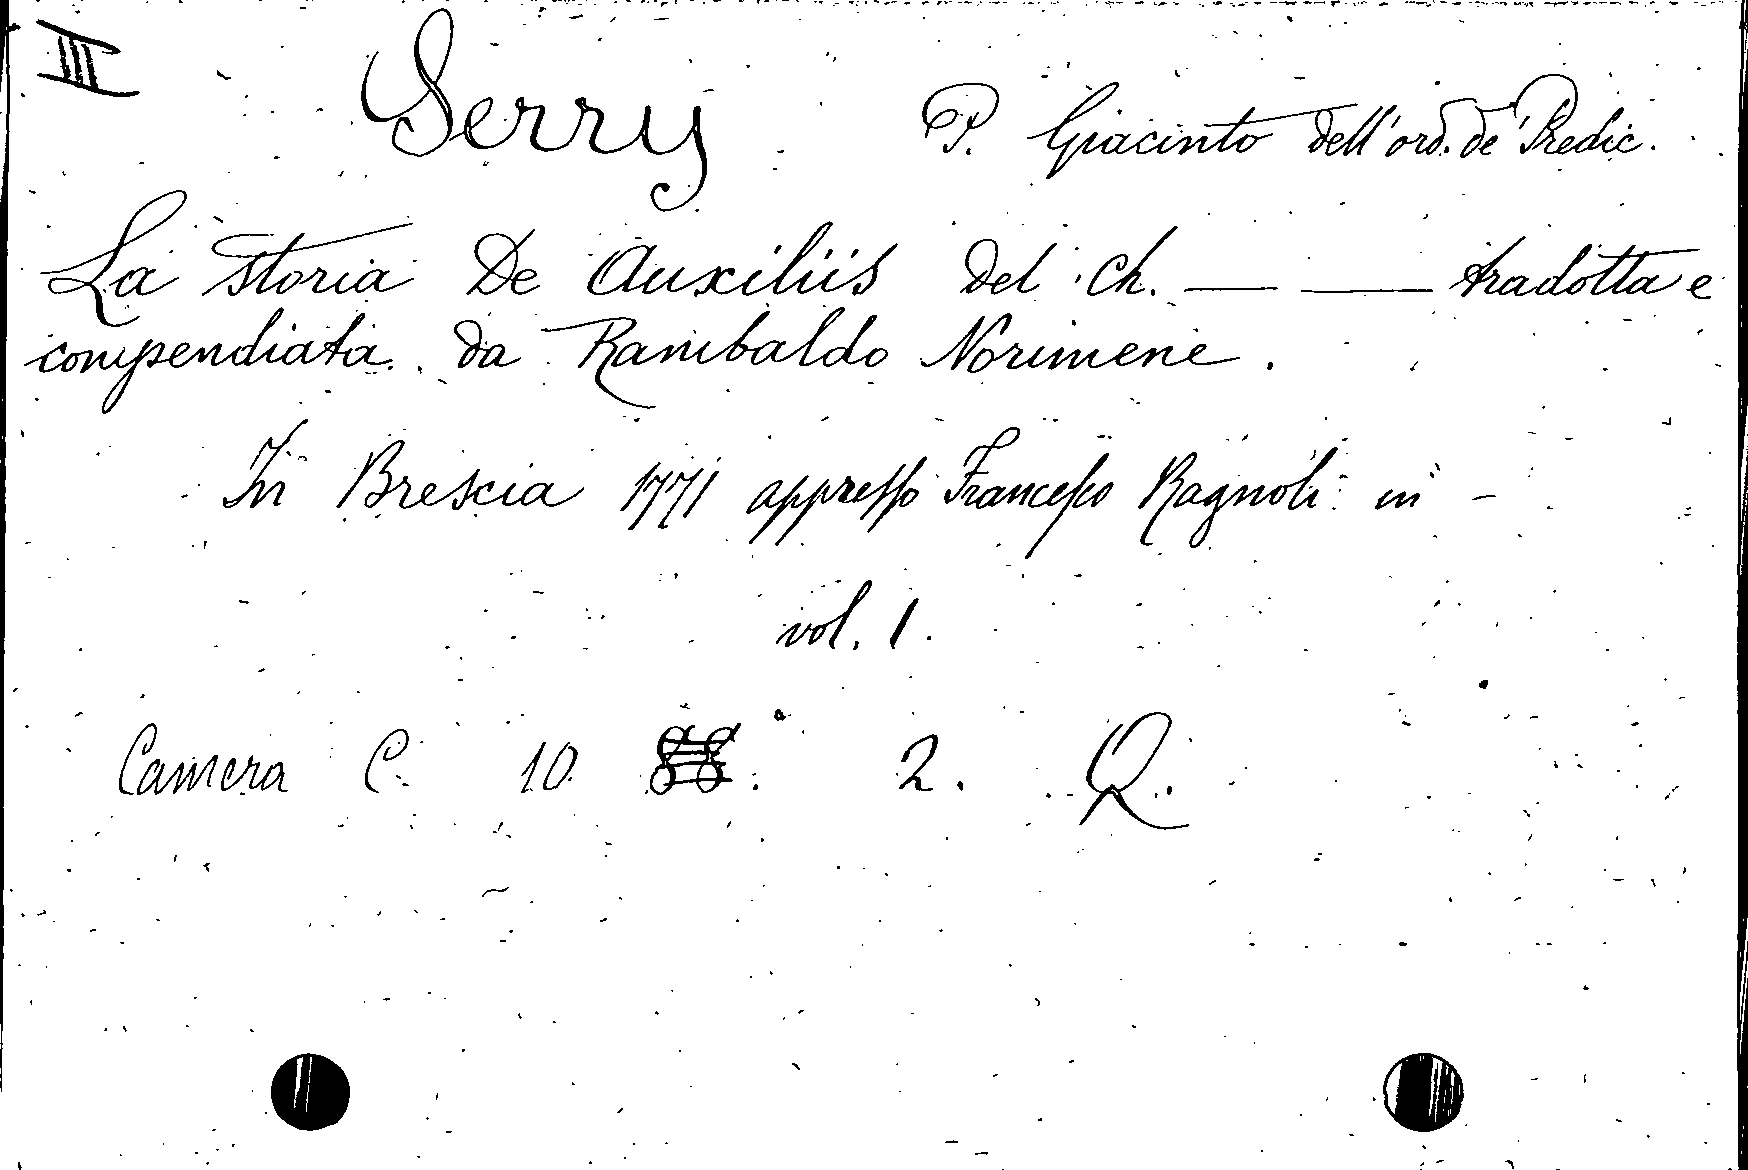 III Serry P. Giacinto dell'ord. de' Predic.
La storia De Auxiliis del ch. — — tradotta e
compendiata da Rambaldo Norimene.
In Brescia 1771 appresso Francesco Ragnoli in -
vol. 1.
Camera C. 10 2. Q.